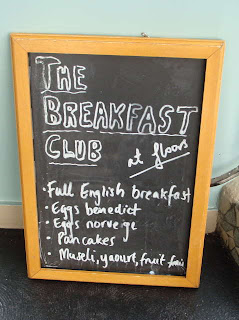 THE
BREAKFAST
CLUB
at floors
• Full English breakfast
• Eggs benedict
• Eggs norveige
• Pancakes
• Museli, yaourt, fruit